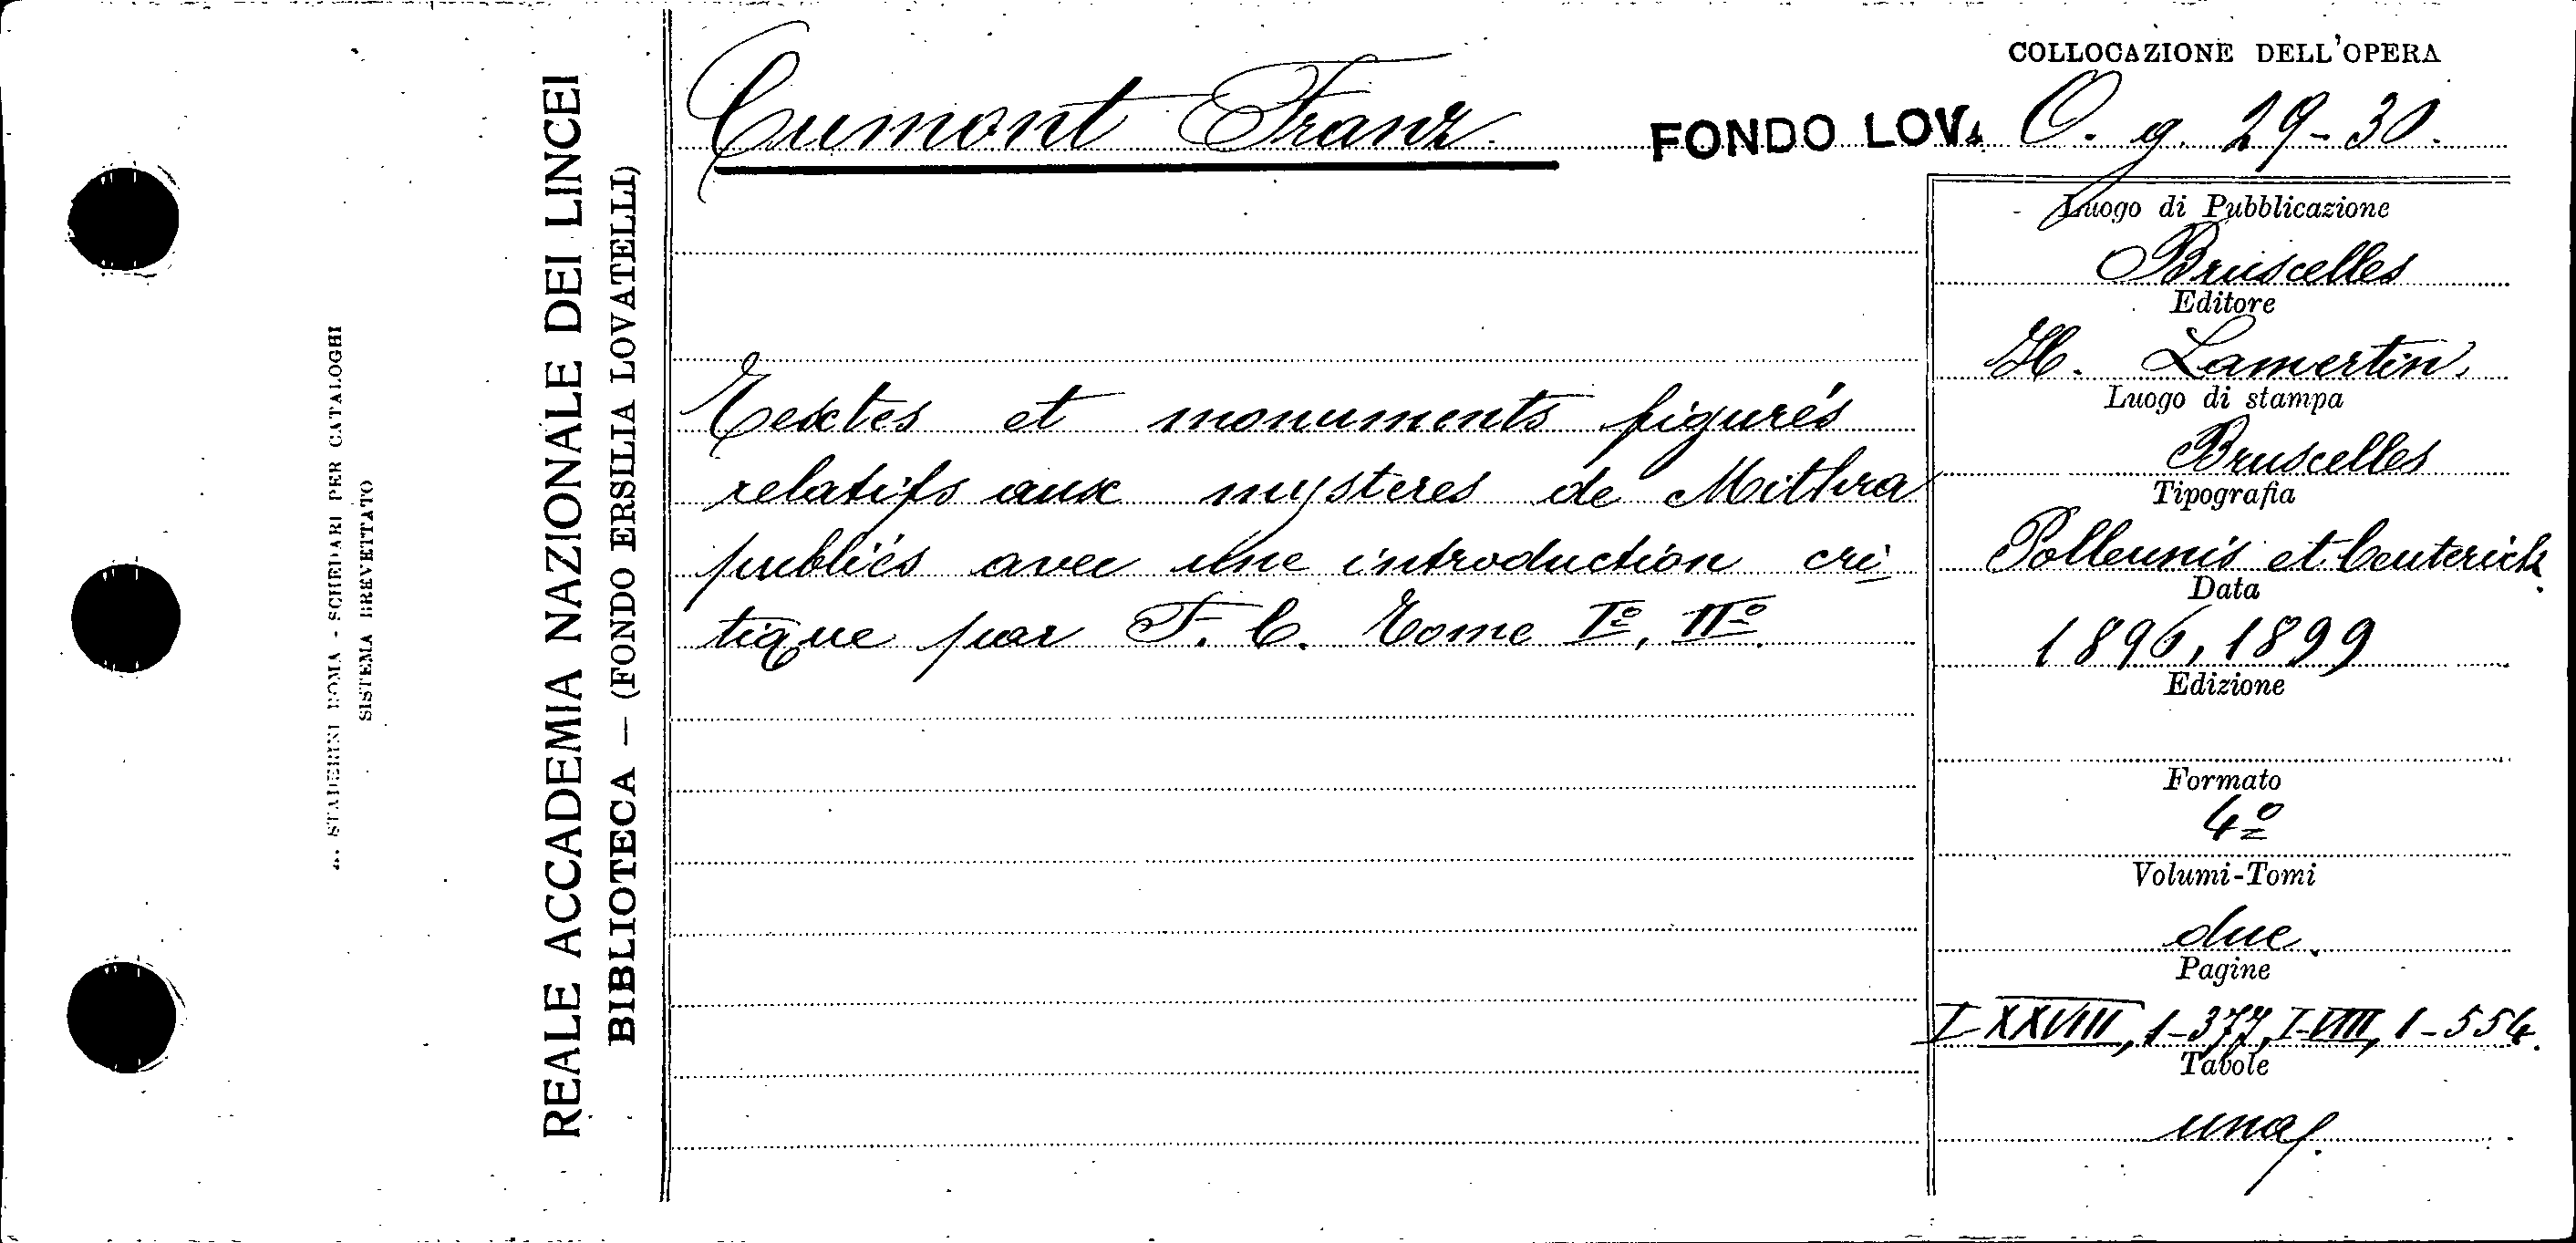 COLLOCAZIONE DELL'OPERA
Cumont Franz. FONDO LOV. O. g. 29-30.
Textes et monuments figurés
relatifs aux mysteres de Mithra
publiés avec une introduction cri
tique par F. C. Tome Iº, IIº.
Luogo di Pubblicazione
Bruxelles
Editore
H. Lamertin.
Luogo di stampa
Bruxelles
Tipografia
Polleunis et Ceuterick.
Data
1896, 1899
Edizione
Formato
4º
Volumi-Tomi
due.
Pagine
I-XXVIII, 1-377, I-VIII, 1-554.
Tavole
una.
REALE ACCADEMIA NAZIONALE DEI LINCEI
BIBLIOTECA — (FONDO ERSILIA LOVATELLI)
STADERINI ROMA - SCHEDARI PER CATALOGHI
SISTEMA BREVETTATO